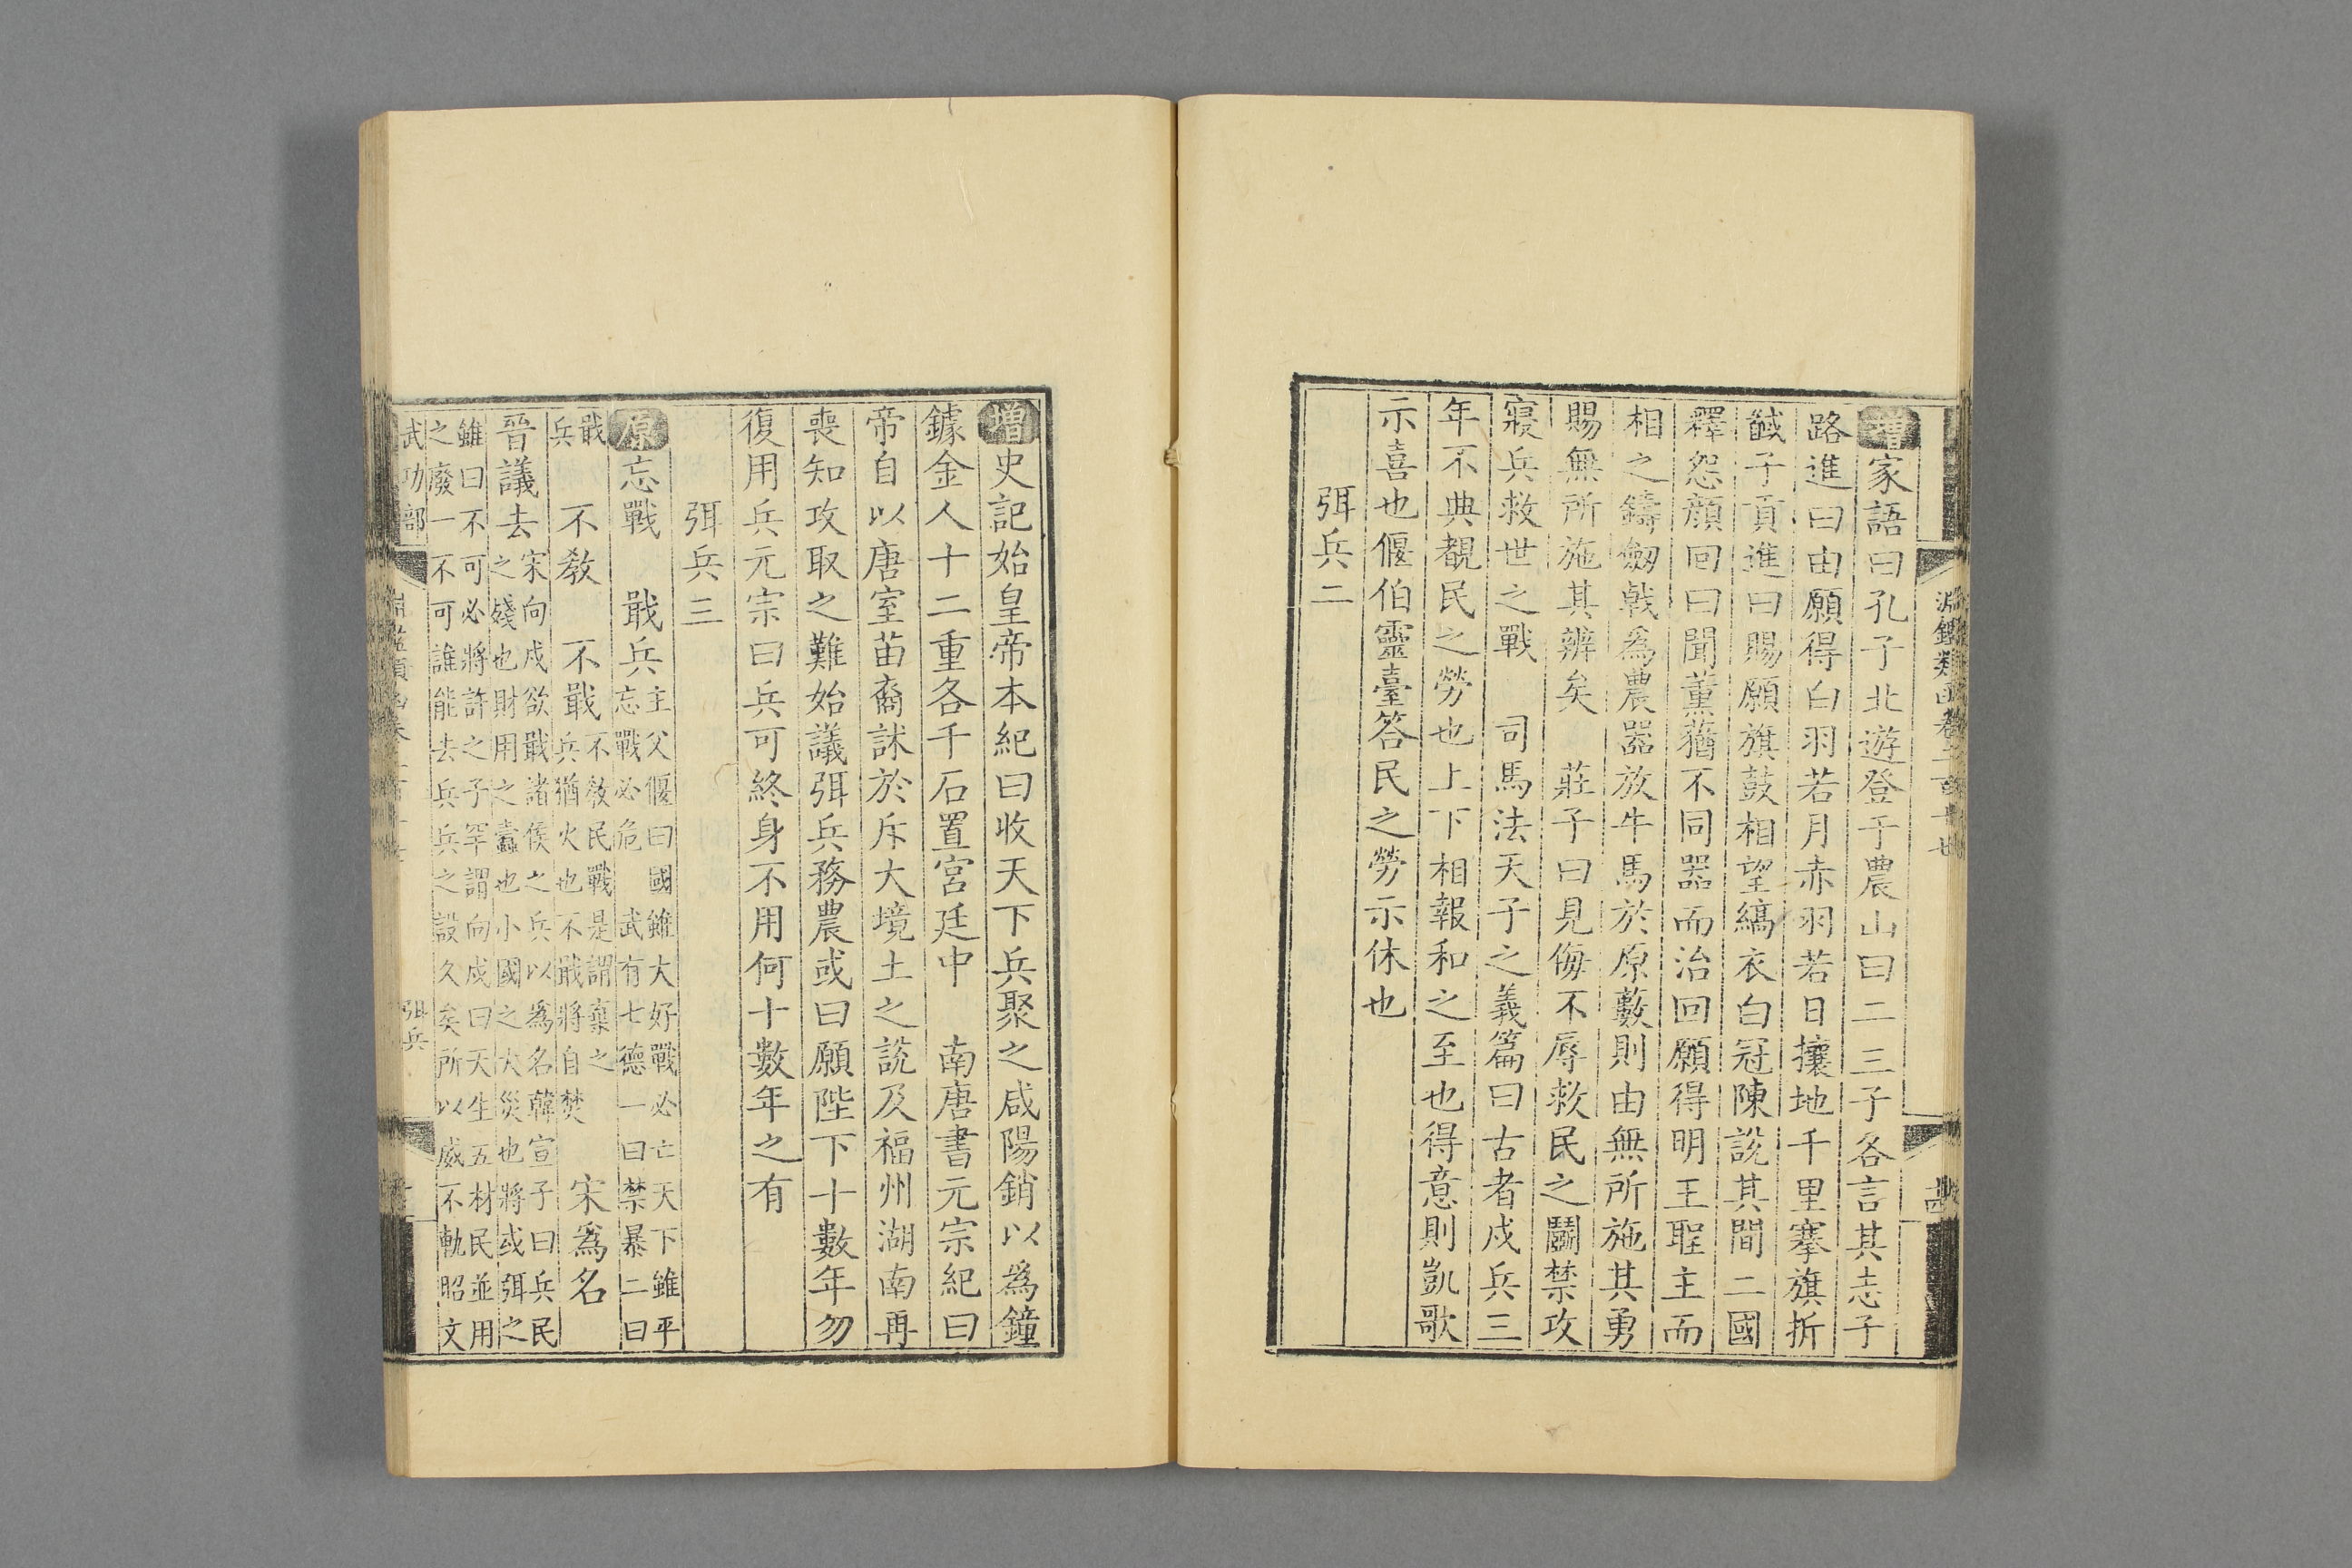 增家語曰孔子北遊登于農山曰二三子各言其志子
路進曰由願得白羽若月赤羽若日攘地千里搴旗折
馘子貢進曰賜願旗鼓相望縞衣白冠陳說其間二國
釋怨顏回曰聞薰蕕不同器而治回願得明王聖主而
相之鑄劒戟爲農器放牛馬於原藪則由無所施其勇
賜無所施其辨矣　莊子曰見侮不辱救民之鬭禁攻
寢兵救世之戰　司馬法天子之義篇曰古者戍兵三
年不典覩民之勞也上下相報和之至也得意則凱歌
示喜也偃伯靈臺答民之勞示休也
弭兵二
增史記始皇帝本紀曰收天下兵聚之咸陽銷以爲鐘
鐻金人十二重各千石置宮廷中　南唐書元宗紀曰
帝自以唐室苗裔詸於斥大境土之說及福州湖南再
喪知攻取之難始議弭兵務農或曰願陛下十數年勿
復用兵元宗曰兵可終身不用何十數年之有
弭兵三
原忘戰　戢兵主父偃曰國雖大好戰必亡天下雖平
忘戰必危　武有七德一曰禁暴二曰
戢
兵　不敎　不戢不敎民戰是謂棄之
兵猶火也不戢將自焚　宋爲名
晉議去宋向戍欲戢諸侯之兵以爲名韓宣子曰兵民
之殘也財用之蠹也小國之大災也將或弭之
雖曰不可必將許之子罕謂向戍曰天生五材民並用
之廢一不可誰能去兵兵之設久矣所以威不軌昭文
武功部
弭兵